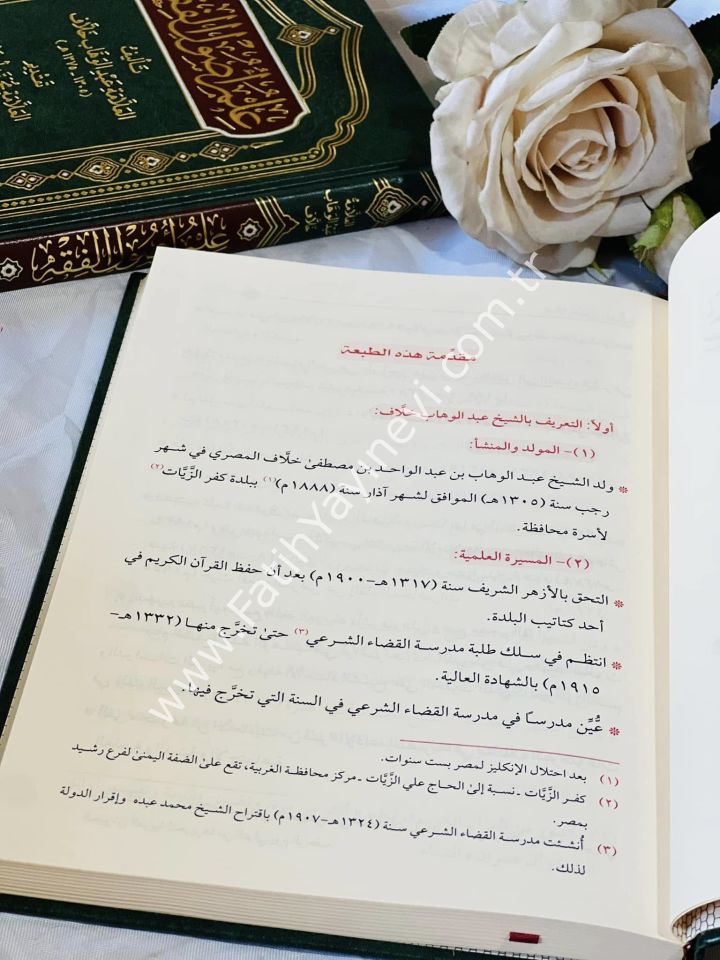 علم أصول الفقه
تأليف
العلامة عبد الوهاب خلاف
(١٣٠٥ - ١٣٧٥هـ)
تقديم
العلامة
علم أصول الفقه
العلامة
عبد الوهاب
خلاف
مقدّمة هذه الطبعة
أولاً: التعريف بالشيخ عبد الوهاب خلَّاف:
(١)- المولد والمنشأ:
❊ ولد الشيخ عبد الوهاب بن عبد الواحد بن مصطفىٰ خلَّاف المصري في شهر
رجب سنة (١٣٠٥هـ) الموافق لشهر آذار سنة (١٨٨٨م)(١) ببلدة كفر الزَّيَّات(٢)
لأسرة محافظة.
(٢)- المسيرة العلمية:
❊ التحق بالأزهر الشريف سنة (١٣١٧هـ-١٩٠٠م) بعد أن حفظ القرآن الكريم في
أحد كتاتيب البلدة.
❊ انتظم في سلك طلبة مدرسة القضاء الشرعي(٣) حتىٰ تخرَّج منها (١٣٣٢هـ-
١٩١٥م) بالشهادة العالية.
❊ عُيِّن مدرساً في مدرسة القضاء الشرعي في السنة التي تخرَّج فيها.
(١) بعد احتلال الإنكليز لمصر بست سنوات.
(٢) كفر الزَّيَّات ـ نسبة إلىٰ الحاج علي الزَّيَّات ـ مركز محافظة الغربية، تقع علىٰ الضفة اليمنىٰ لفرع رشيد
بمصر.
(٣) أُنشئت مدرسة القضاء الشرعي سنة (١٣٢٤هـ-١٩٠٧م) باقتراح الشيخ محمد عبده وإقرار الدولة
لذلك.
www.FatihYayinevi.com.tr